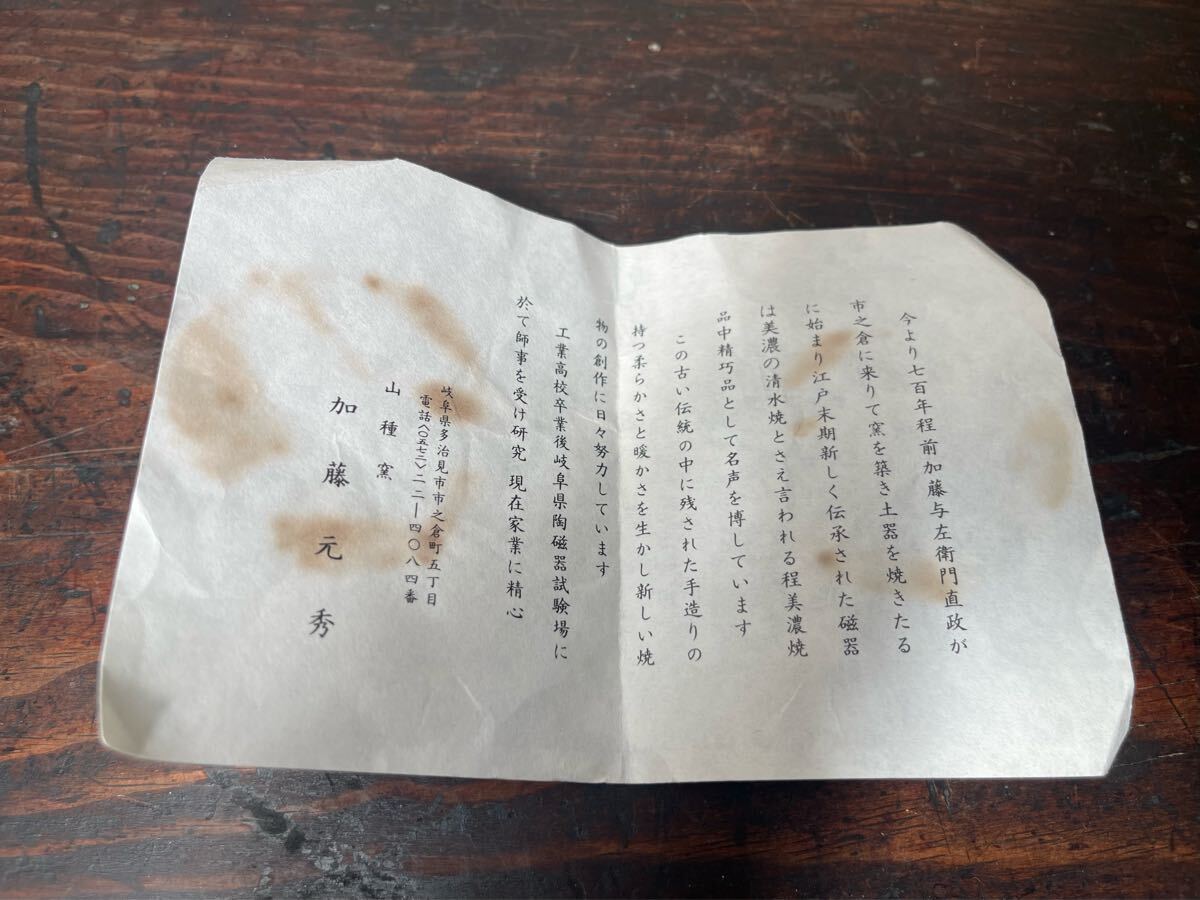 今より七百年程前加藤与左衛門直政が
市之倉に来りて窯を築き土器を焼きたる
に始まり江戸末期新しく伝承された磁器
は美濃の清水焼とさえ言われる程美濃焼
品中精巧品として名声を博しています
この古い伝統の中に残された手造りの
持つ柔らかさと暖かさを生かし新しい焼
物の創作に日々努力しています
工業高校卒業後岐阜県陶磁器試験場に
於て師事を受け研究 現在家業に精心
岐阜県多治見市市之倉町五丁目
電話〈〇五七二〉二二―四〇八四番
山種窯
加藤元秀